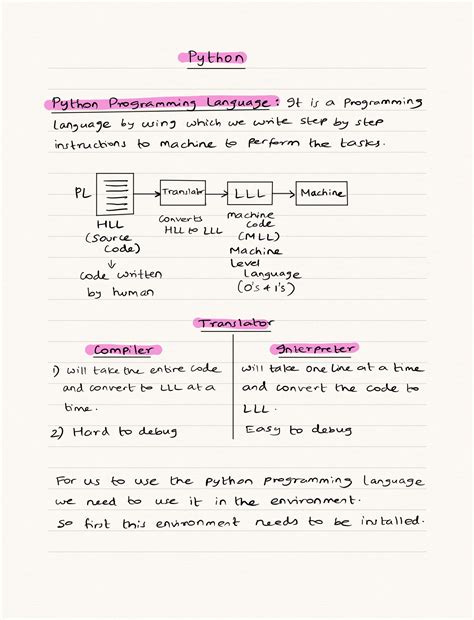 Python
Python Programming Language : It is a programming
language by using which we write step by step
instructions to machine to perform the tasks.
PL
Translator
LLL
Machine
HLL
(Source
Code)
Converts
HLL to LLL
machine
code
(MLL)
Machine
Level
Language
(0's & 1's)
code written
by human
Translator
Compiler
1) will take the entire code
and convert to LLL at a
time.
2) Hard to debug
Interpreter
will take one line at a time
and convert the code to
LLL.
Easy to debug
For us to use the python programming language
we need to use it in the environment.
So first this environment needs to be installed.